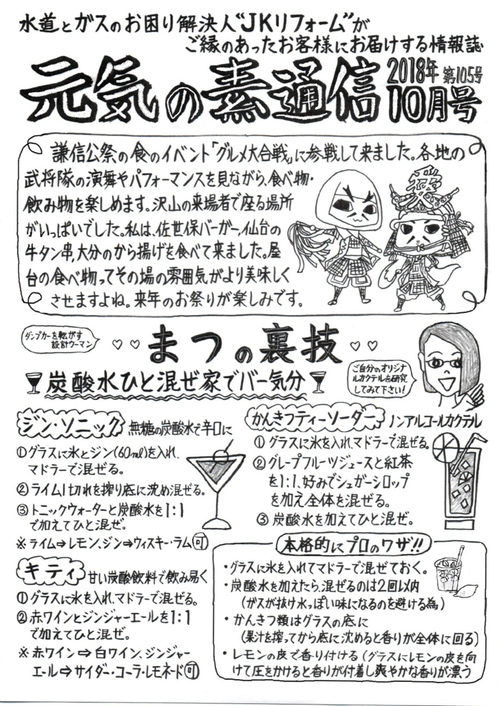 水道とガスのお困り解決人"JKリフォーム"が
ご縁のあったお客様にお届けする情報誌
元気の素通信
2018年 第105号
10月号
謙信公祭の食のイベント「グルメ大合戦」に参戦して来ました。各地の
武将隊の演舞やパフォーマンスを見ながら、食べ物・
飲み物を楽しめます。沢山の来場者で座る場所
がいっぱいでした。私は、佐世保バーガー、仙台の
牛タン串、大分のから揚げを食べて来ました。屋
台の食べ物ってその場の雰囲気がより美味しく
させますよね。来年のお祭りが楽しみです。
ダンプカーを転がす
設計ウーマン
まつの裏技
炭酸水ひと混ぜ家でバー気分
ご自分のオリジナ
ルカクテルを研究
してみて下さい!
ジン・ソニック 無糖の炭酸水で辛口に
①グラスに氷とジン(60ml)を入れ、
マドラーで混ぜる。
②ライム1切れを搾り底に沈め混ぜる。
③トニックウォーターと炭酸水を1:1
で加えてひと混ぜ。
※ライム⇒レモン、ジン⇒ウィスキー・ラム可
キティ 甘い炭酸飲料で飲み易く
①グラスに氷を入れ、マドラーで混ぜる。
②赤ワインとジンジャーエールを1:1
で加えてひと混ぜ。
※赤ワイン⇒白ワイン、ジンジャー
エール⇒サイダー・コーラ・レモネード可
かんきつティーソーダー ノンアルコールカクテル
①グラスに氷を入れ、マドラーで混ぜる。
②グレープフルーツジュースと紅茶
を1:1、好みでシュガーシロップ
を加え全体を混ぜる。
③炭酸水を加えてひと混ぜ。
本格的にプロのワザ!!
・グラスに氷を入れてマドラーで混ぜておく。
・炭酸水を加えたら、混ぜるのは2回以内
(ガスが抜け水っぽい味になるのを避ける為)
・かんきつ類はグラスの底に
(果汁を搾ってから底に沈めると香りが全体に回る)
・レモンの皮で香り付ける(グラスにレモンの皮を向
けて圧をかけると香りが付着し爽やかな香りが漂う